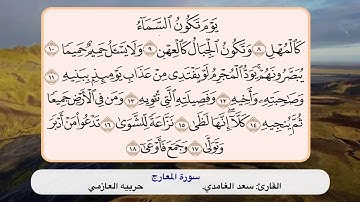 يَوْمَ تَكُونُ السَّمَآءُ
كَالْمُهْلِ ٨ وَتَكُونُ الْجِبَالُ كَالْعِهْنِ ٩ وَلَا يَسْـَٔلُ حَمِيمٌ حَمِيمًا ١٠
يُبَصَّرُونَهُمْ ۚ يَوَدُّ الْمُجْرِمُ لَوْ يَفْتَدِى مِنْ عَذَابِ يَوْمِئِذٍۭ بِبَنِيهِ ١١
وَصَٰحِبَتِهِۦ وَأَخِيهِ ١٢ وَفَصِيلَتِهِ الَّتِى تُـْٔوِيهِ ١٣ وَمَن فِى الْأَرْضِ جَمِيعًا
ثُمَّ يُنجِيهِ ١٤ كَلَّآ ۖ إِنَّهَا لَظَىٰ ١٥ نَزَّاعَةً لِّلشَّوَىٰ ١٦ تَدْعُوا۟ مَنْ أَدْبَرَ
وَتَوَلَّىٰ ١٧ وَجَمَعَ فَأَوْعَىٰٓ ١٨
سورة المعارج
القارئ: سعد الغامدي. حربيه العازمي